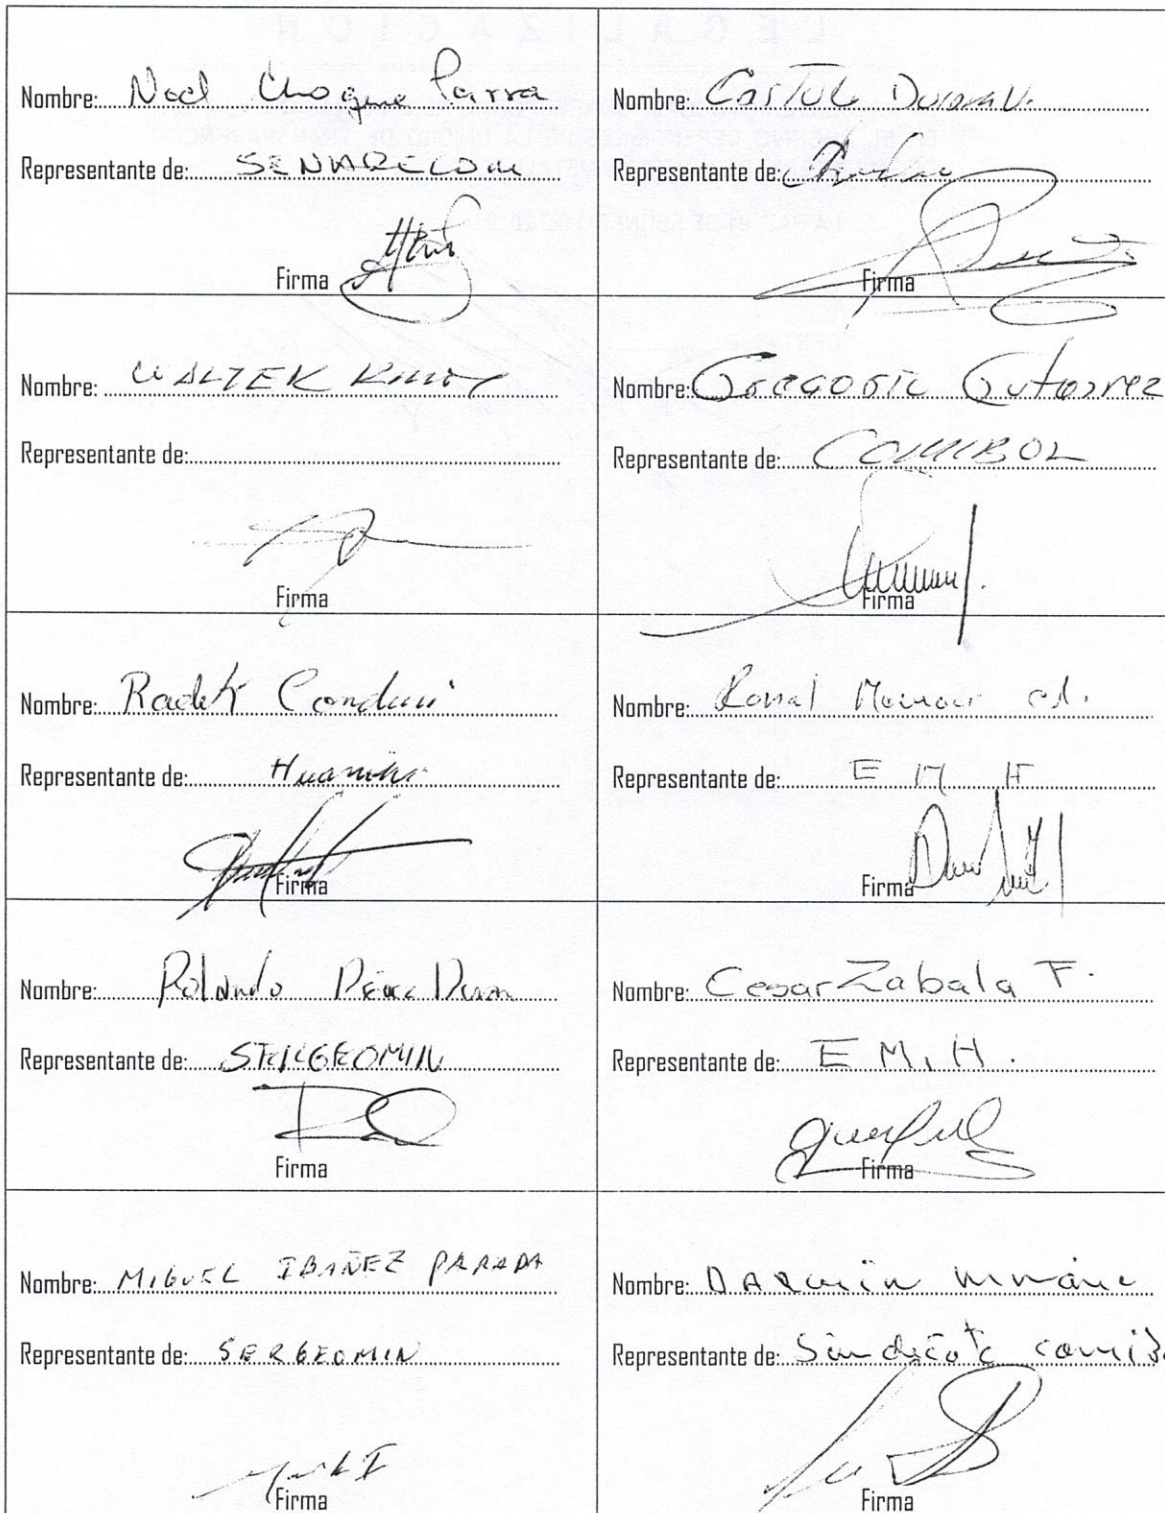 Nombre: Noel Choque Parra
Representante de: SENARECOM
Firma
Nombre: Castulo Duran V.
Representante de:
Firma
Nombre: WALTER
Representante de:
Firma
Nombre: Gregorio Gutierrez
Representante de: COMIBOL
Firma
Nombre: Radek Condori
Representante de: Huanuni
Firma
Nombre: Ronal Mamani
Representante de: E M H
Firma
Nombre: Rolando Pérez Duran
Representante de: SERGEOMIN
Firma
Nombre: Cesar Zabala F.
Representante de: E.M.H.
Firma
Nombre: MIGUEL IBAÑEZ PARADA
Representante de: SERGEOMIN
Firma
Nombre: DARwin
Representante de: Sindicato
Firma